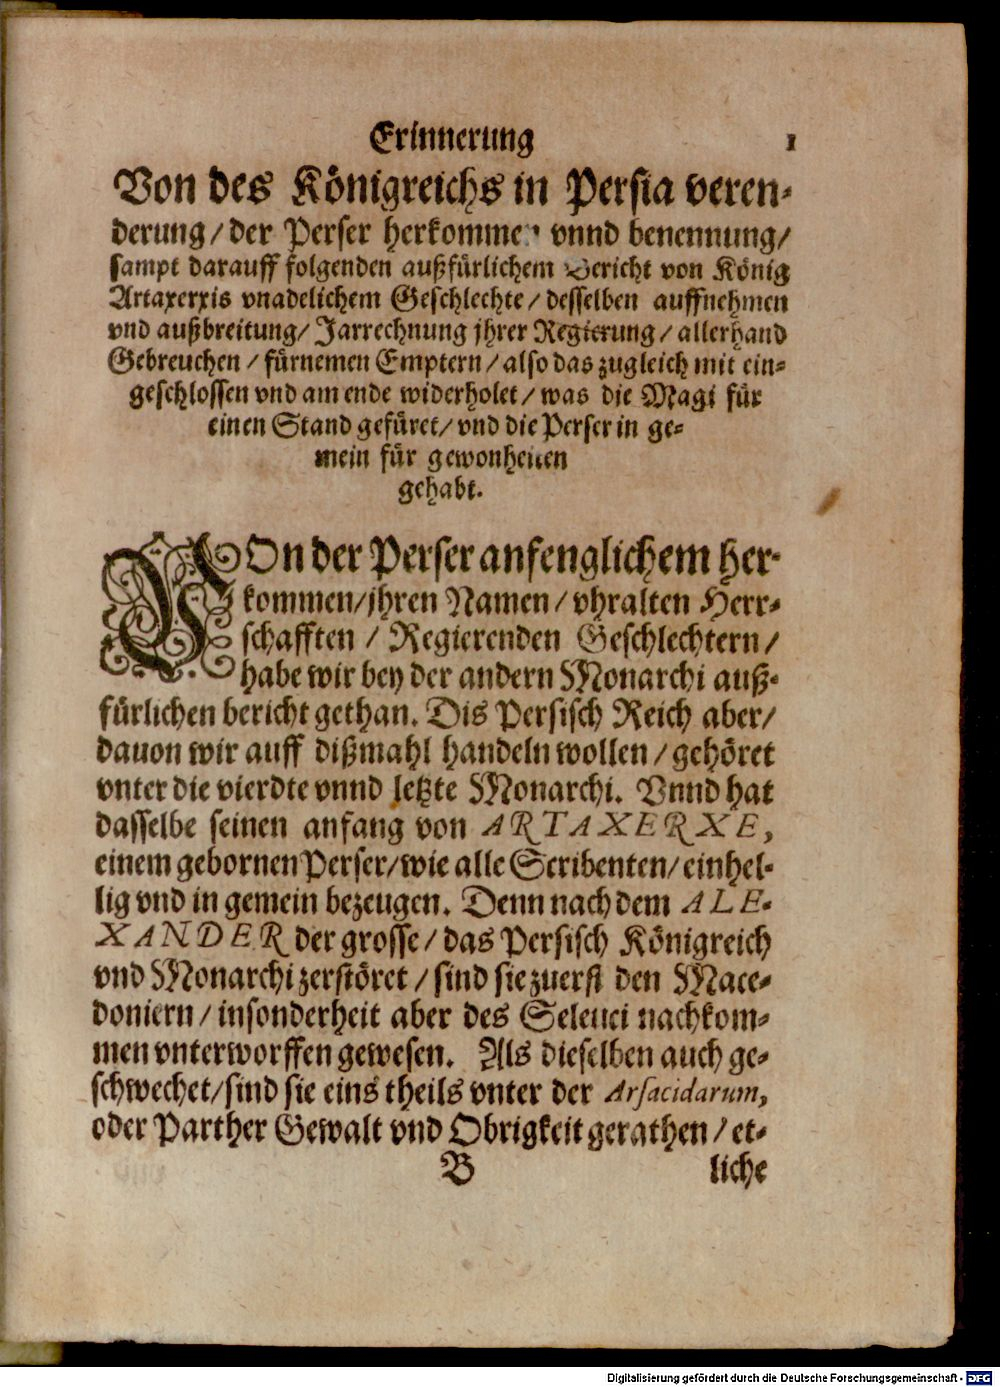 Erinnerung 1
Von des Königreichs in Persia veren-
derung/ der Perser herkommen vnnd benennung/
sampt darauff folgenden außfürlichem Bericht von König
Artaxerxis vnadelichem Geschlechte/ desselben auffnehmen
vnd außbreitung/ Jarrechnung jhrer Regierung/ allerhand
Gebreuchen/ fürnemen Emptern/ also das zugleich mit ein-
geschlossen vnd am ende widerholet/ was die Magi für
einen Stand gefüret/ vnd die Perser in ge-
mein für gewonheiten
gehabt.
VOn der Perser anfenglichem her-
kommen/ jhren Namen/ vhralten Herr-
schafften/ Regierenden Geschlechtern/
habe wir bey der andern Monarchi auß-
fürlichen bericht gethan. Dis Persisch Reich aber/
dauon wir auff dißmahl handeln wollen/ gehöret
vnter die vierdte vnnd letzte Monarchi. Vnnd hat
dasselbe seinen anfang von ARTAXERXE,
einem gebornen Perser/ wie alle Scribenten/ einhel-
lig vnd in gemein bezeugen. Denn nach dem ALE-
XANDER der grosse/ das Persisch Königreich
vnd Monarchi zerstöret/ sind sie zuerst den Mace-
doniern/ insonderheit aber des Seleuci nachkom-
men vnterworffen gewesen. Als dieselben auch ge-
schwechet/ sind sie eins theils vnter der Arsacidarum,
oder Parther Gewalt vnd Obrigkeit gerathen/ et-
B liche
Digitalisierung gefördert durch die Deutsche Forschungsgemeinschaft - DFG